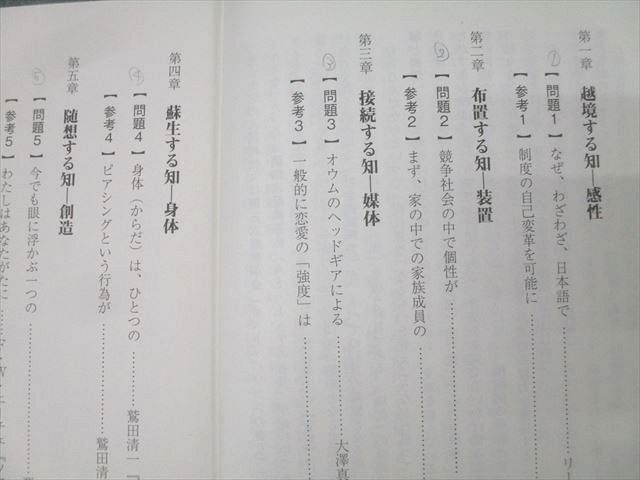 第一章 越境する知―感性
①【問題1】なぜ、わざわざ、日本語で………………リー
【参考1】制度の自己変革を可能に………………
第二章 布置する知―装置
②【問題2】競争社会の中で個性が………………
【参考2】まず、家の中での家族成員の………………
第三章 接続する知―媒体
③【問題3】オウムのヘッドギアによる………………大澤真
【参考3】一般的に恋愛の「強度」は………………
第四章 蘇生する知―身体
④【問題4】身体（からだ）は、ひとつの………………鷲田清一『
【参考4】ピアシングという行為が………………鷲田清
第五章 随想する知―創造
⑤【問題5】今でも眼に浮かぶ一つの………………
【参考5】わたしはあなたがたに………F・W・ニーチェ『ツ